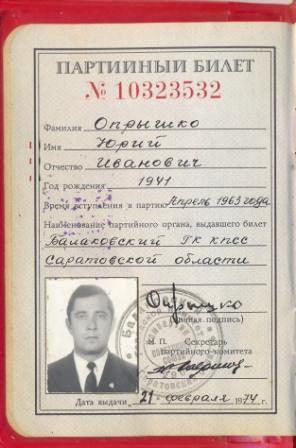 ПАРТИЙНЫЙ БИЛЕТ
№ 10323532
Фамилия Опрышко
Имя Юрий
Отчество Иванович
Год рождения 1941
Время вступления в партию Апрель 1963 года
Наименование партийного органа, выдавшего билет
Балаковский ГК КПСС
Саратовской области
Опрышко
(личная подпись)
М. П. Секретарь
партийного комитета
Дата выдачи 21 февраля 1974 г.